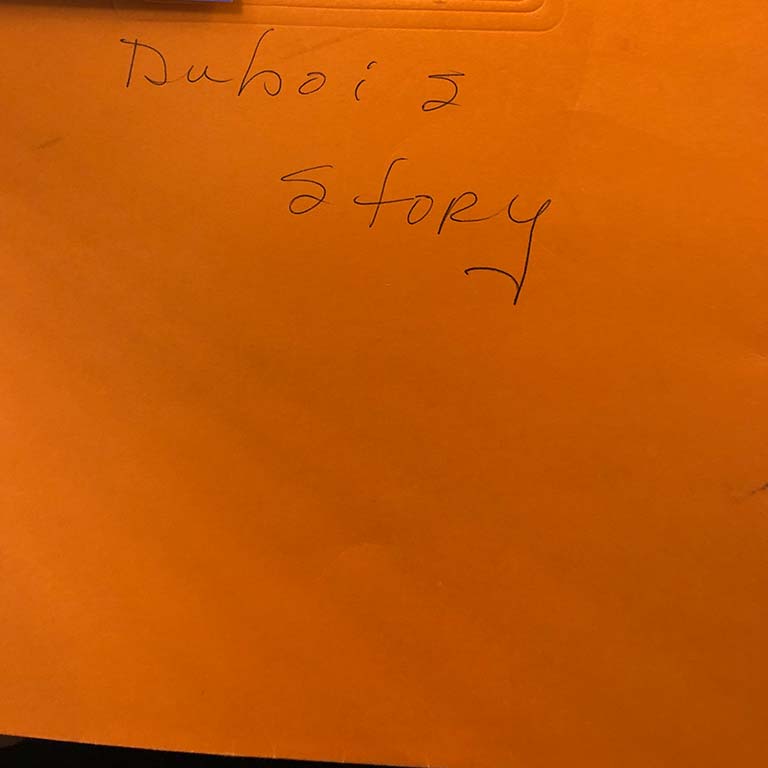 Dubois
Story